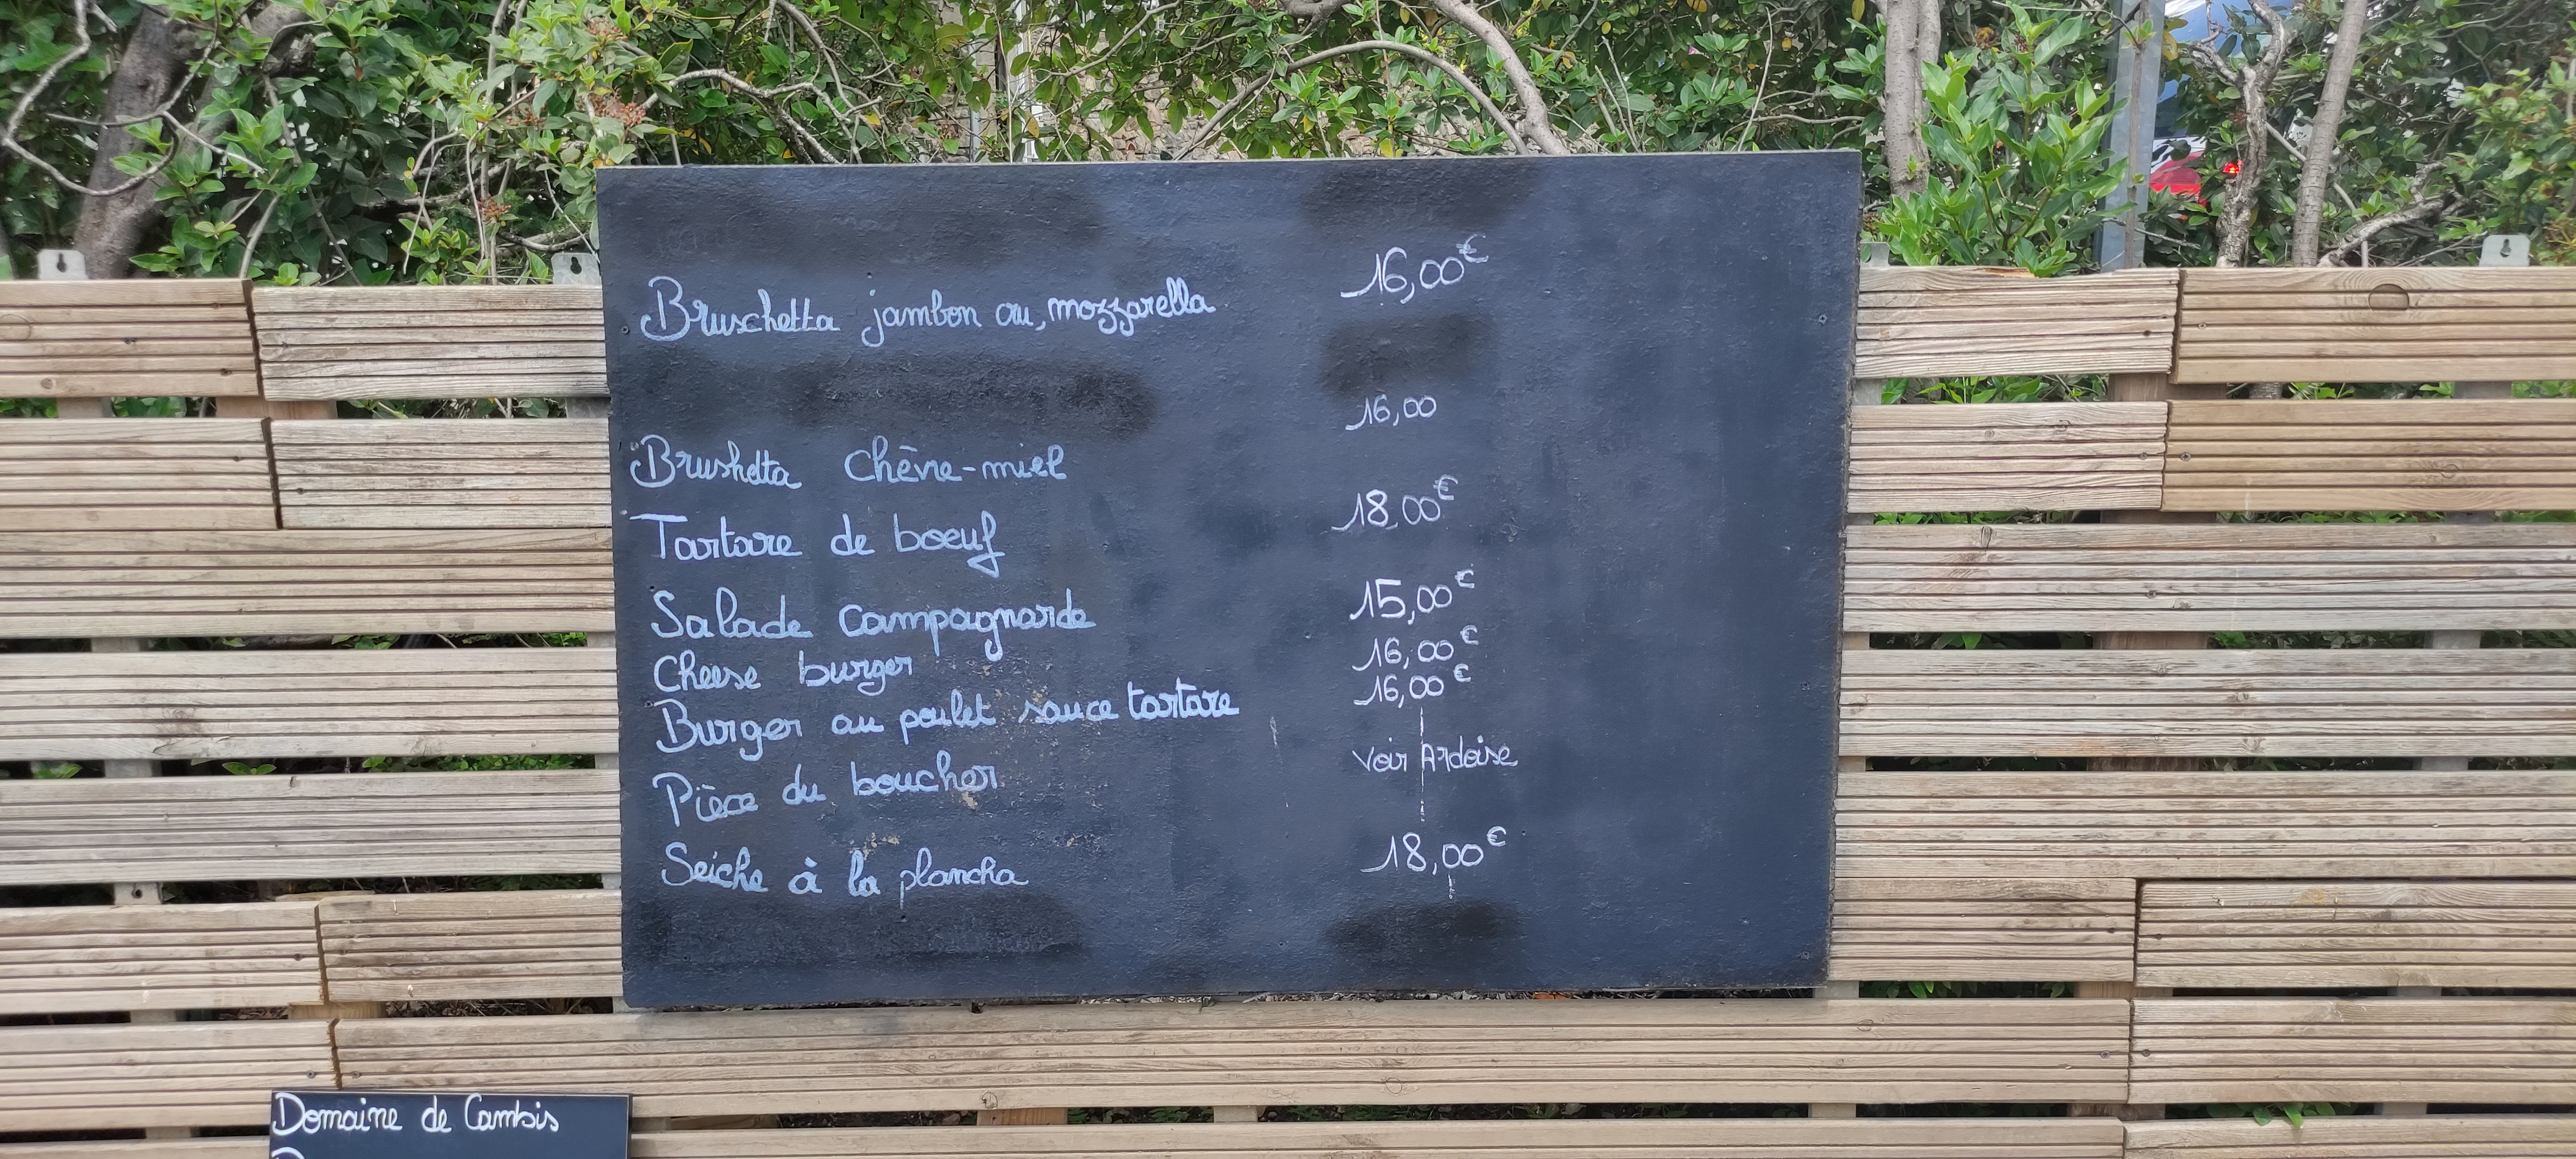 Bruschetta jambon ou, mozzarella 16,00€
Brushetta Chèvre-miel 16,00
Tartare de boeuf 18,00€
Salade campagnarde 15,00€
Cheese burger 16,00€
Burger au poulet sauce tartare 16,00€
Pièce du boucher Voir Ardoise
Seiche à la plancha 18,00€
Domaine de Cambis